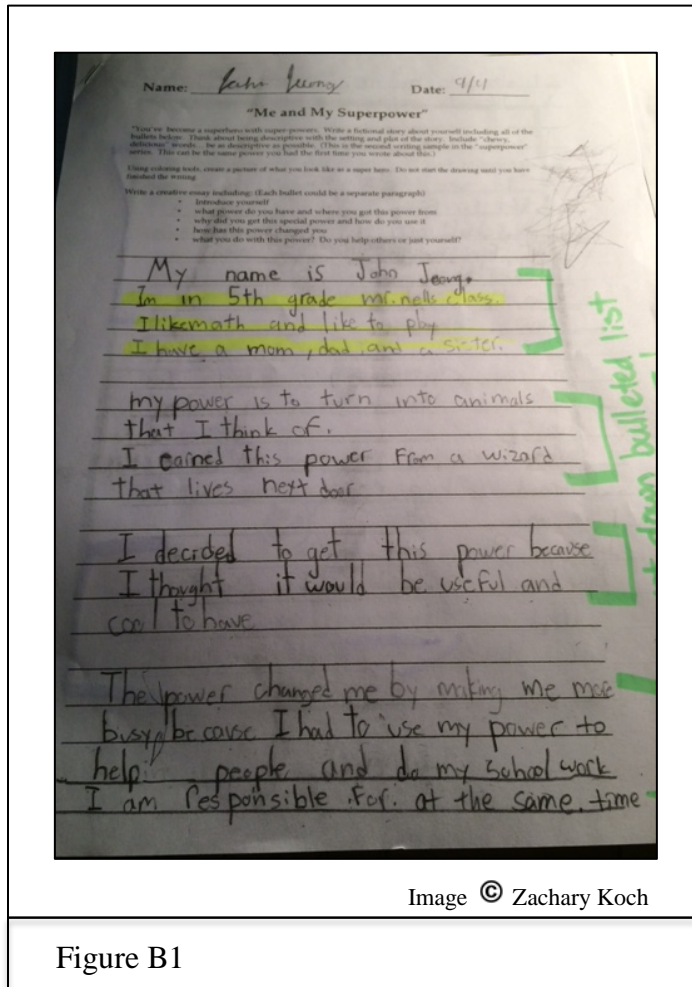 Name: John Jeong Date: 9/4
"Me and My Superpower"
"You've become a superhero with super-powers. Write a fictional story about yourself including all of the
bullets below. Think about being descriptive with the setting and plot of the story. Include "chewy,
delicious" words... be as descriptive as possible. (This is the second writing sample in the "superpower"
series. This can be the same power you had the first time you wrote about this.)
Using coloring tools, create a picture of what you look like as a super hero. Do not start the drawing until you have
finished the writing
Write a creative essay including: (Each bullet could be a separate paragraph)
• Introduce yourself
• what power do you have and where you got this power from
• why did you get this special power and how do you use it
• how has this power changed you
• what you do with this power? Do you help others or just yourself?
My name is John Jeong.
Im in 5th grade mr. nells class.
I like math and like to play
I have a mom, dad, and a sister.
my power is to turn into animals
that I think of.
I earned this power From a wizard
that lives next door
I decided to get this power because
I thought it would be useful and
cool to have
The power changed me by making me more
busy because I had to use my power to
help people and do my school work
I am responsible for. at the same. time
down bulleted list
Image © Zachary Koch
Figure B1